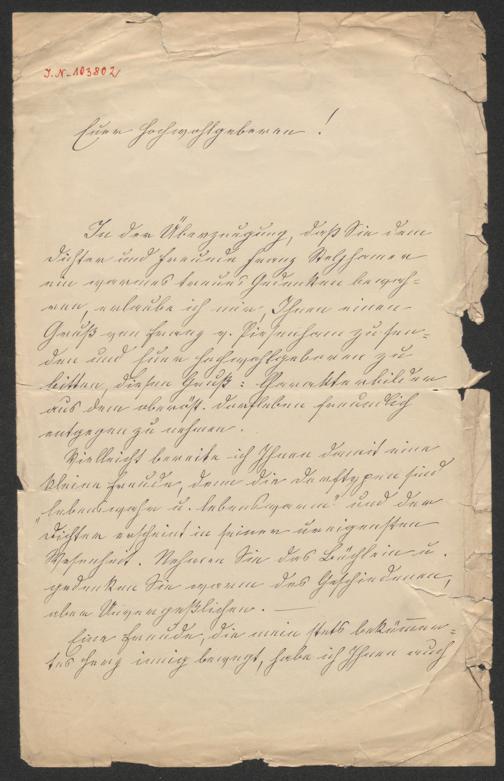 I.N. 103802
Euer Hochwohlgeboren!
In der Überzeugung, daß Sie dem
Dichter und Freunde Franz Stelzhamer
ein warmes treues Gedenken bewah-
ren, erlaube ich mir, Ihnen einen
Gruß von Franz v. Piesenham zu sen-
den und Euer Hochwohlgeboren zu
bitten, diesen Gruß: Charakterbilder
aus dem oberöst. Dorfleben freundlich
entgegen zu nehmen.
Vielleicht bereite ich Ihnen damit eine
kleine Freude, denn die Dorftypen sind
„lebenswahr u. lebenswarm" und der
Dichter erscheint in seiner ureigensten
Wesenheit. Nehmen Sie das Büchlein u.
gedenken Sie warm des Geschiedenen,
aber Unvergeßlichen. —
Eine Freude, die mein stets bekümmer-
tes Herz innig bewegt, habe ich Ihnen auch